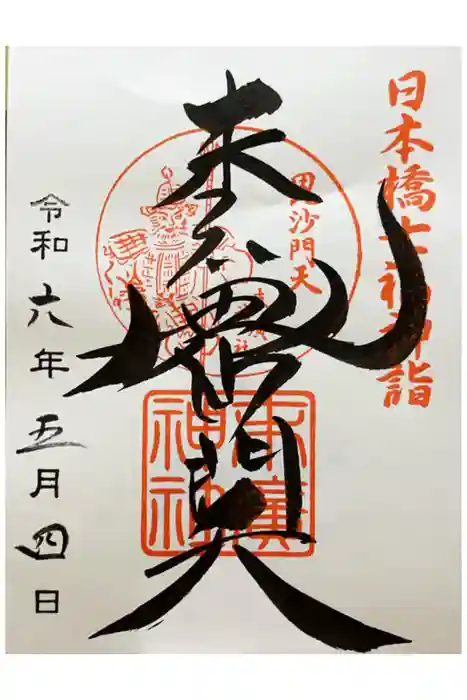 日本橋七福神詣
毘沙門天
末廣神社
末廣
神社
令和六年五月四日